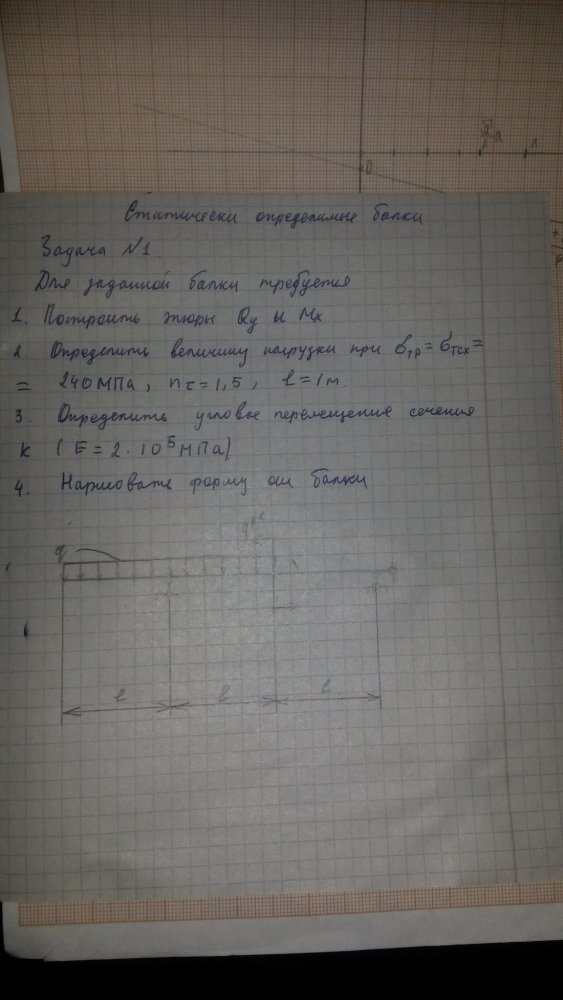 0
π
Статически определимые балки
Задача №1.
Для заданной балки требуется
1. Построить эпюры Qy и Mx
2 Определить величину нагрузки при бтр = бтсж =
= 240 МПа, nт = 1,5, l = 1м.
3. Определить угловое перемещение сечения
k (E = 2 · 10⁵ МПа).
4. Нарисовать форму оси балки
q
l l l